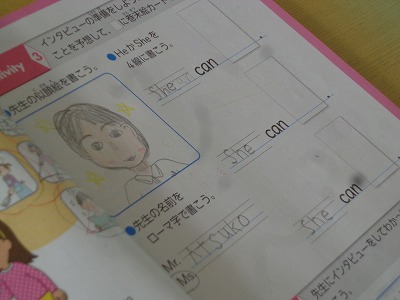 tivity 3
インタビューの準備をしよう
ことを予想して、
に巻末絵カード
先生の似顔絵を書こう。
HeかSheを
4線に書こう。
she can
she can
she can
先生の名前を
ローマ字で書こう。
Mr.
Ms.
Atsuko
先生にインタビューをしてわか